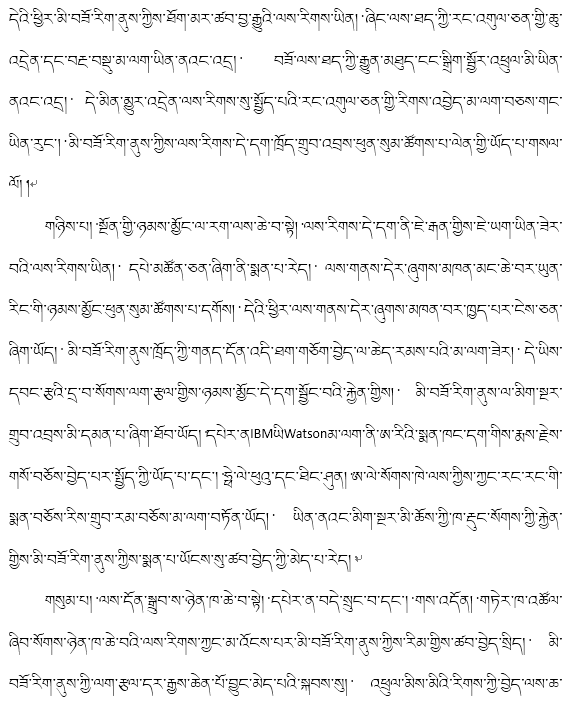 དེའི་ཕྱིར་མི་བཟོ་རིག་ནུས་ཀྱིས་ཐོག་མར་ཚབ་བྱ་རྒྱུའི་ལས་རིགས་ཡིན། ཞིང་ལས་ཐད་ཀྱི་རང་འགུལ་ཅན་གྱི་ཆུ་
འདྲེན་དང་བརྔ་བསྡུ་མ་ལག་ཡིན་ནའང་འདྲ། བཟོ་ལས་ཐད་ཀྱི་རྒྱུན་མཐུད་ངང་སྒྲིག་སྦྱོར་འཕྲུལ་མི་ཡིན་
ནའང་འདྲ། དེ་མིན་མྱུར་འདྲེན་ལས་རིགས་སུ་སྤྱོད་པའི་རང་འགུལ་ཅན་གྱི་རིགས་འབྱེད་མ་ལག་བཅས་གང་
ཡིན་རུང་། མི་བཟོ་རིག་ནུས་ཀྱིས་ལས་རིགས་དེ་དག་ཁྲོད་གྲུབ་འབྲས་ཕུན་སུམ་ཚོགས་པ་ལེན་གྱི་ཡོད་པ་གསལ་
ལོ། །
གཉིས་པ། སྔོན་གྱི་ཉམས་མྱོང་ལ་རག་ལས་ཆེ་བ་སྟེ། ལས་རིགས་དེ་དག་ནི་ཇེ་རྒན་གྱིས་ཇེ་ཡག་ཡིན་ཟེར་
བའི་ལས་རིགས་ཡིན། དཔེ་མཚོན་ཅན་ཞིག་ནི་སྨན་པ་རེད། ལས་གནས་དེར་ཞུགས་མཁན་མང་ཆེ་བར་ཡུན་
རིང་གི་ཉམས་མྱོང་ཕུན་སུམ་ཚོགས་པ་དགོས། དེའི་ཕྱིར་ལས་གནས་དེར་ཞུགས་མཁན་བར་ཁྱད་པར་ངེས་ཅན་
ཞིག་ཡོད། མི་བཟོ་རིག་ནུས་ཁྲོད་ཀྱི་གནད་དོན་འདི་ཐག་གཅོག་བྱེད་ལ་ཆེད་རམས་པའི་མ་ལག་ཟེར། དེ་ཡིས་
དབང་རྩའི་དྲ་བ་སོགས་ལག་རྩལ་གྱིས་ཉམས་མྱོང་དེ་དག་སྦྱོང་བའི་རྐྱེན་གྱིས། མི་བཟོ་རིག་ནུས་ལ་མིག་སྔར་
གྲུབ་འབྲས་མི་དམན་པ་ཞིག་ཐོབ་ཡོད། དཔེར་ནIBMཡིWatsonམ་ལག་ནི་ཨ་རིའི་སྨན་ཁང་དག་གིས་རྨས་རྗེས་
གསོ་བཅོས་བྱེད་པར་སྤྱོད་ཀྱི་ཡོད་པ་དང་། ཧྥེ་ལེ་ཕུའུ་དང་ཐིང་ཤུན། ཨ་ལེ་སོགས་ཁེ་ལས་ཀྱིས་ཀྱང་རང་རང་གི་
སྨན་བཅོས་རིས་གྲུབ་རམ་བཅོས་མ་ལག་བཏོན་ཡོད། ཡིན་ནའང་མིག་སྔར་མི་ཆོས་ཀྱི་ཁ་རྡུང་སོགས་ཀྱི་རྐྱེན་
གྱིས་མི་བཟོ་རིག་ནུས་ཀྱིས་སྨན་པ་ཡོངས་སུ་ཚབ་བྱེད་ཀྱི་མེད་པ་རེད།
གསུམ་པ། ལས་དོན་སྒྲུབ་ས་ཉེན་ཁ་ཆེ་བ་སྟེ། དཔེར་ན་བདེ་སྲུང་བ་དང་། གས་འདོན། གཏེར་ཁ་འཚོལ་
ཞིབ་སོགས་ཉེན་ཁ་ཆེ་བའི་ལས་རིགས་ཀྱང་མ་འོངས་པར་མི་བཟོ་རིག་ནུས་ཀྱིས་རིམ་གྱིས་ཚབ་བྱེད་སྲིད། མི་
བཟོ་རིག་ནུས་ཀྱི་ལག་རྩལ་དར་རྒྱས་ཆེན་པོ་བྱུང་མེད་པའི་སྐབས་སུ། འཕྲུལ་མིས་མིའི་རིགས་ཀྱི་བྱེད་ལས་ཆ་